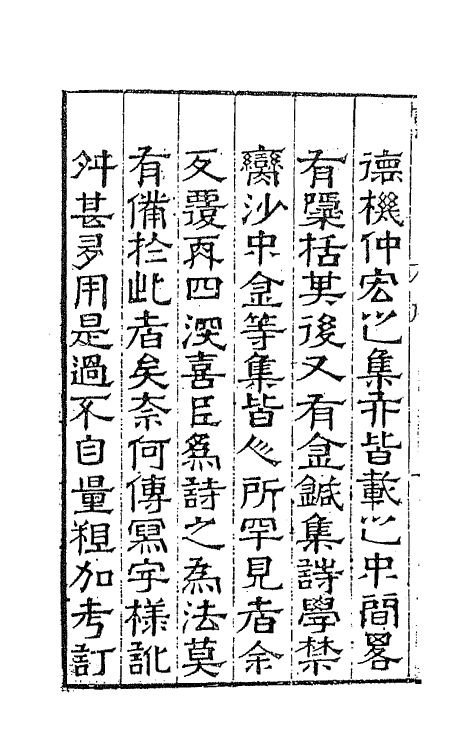 德機仲宏之集亦皆載之中間畧
有檃括其後又有金鍼集詩學禁
臠沙中金等集皆人所罕見者余
反覆再四深喜且爲詩之為法莫
有備扵此者矣柰何傳冩字様訛
舛甚多用是過不自量粗加考訂